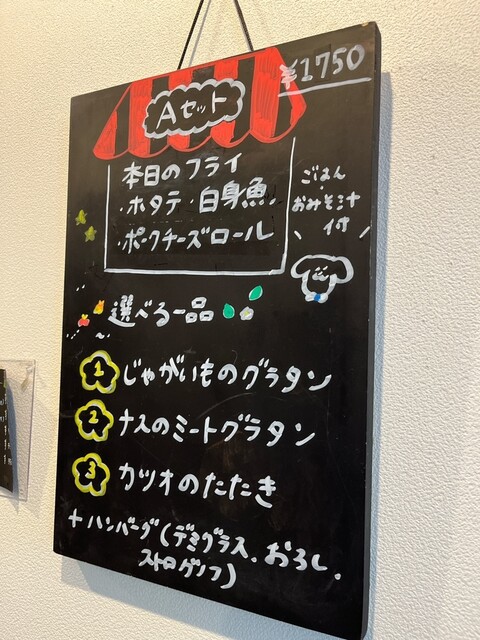 ¥1750
Aセット
本日のフライ
・ホタテ・白身魚
・ポークチーズロール
ごはん
おみそ汁
付
選べる一品
1 じゃがいものグラタン
2 ナスのミートグラタン
3 カツオのたたき
+ハンバーグ(デミグラス、おろし、
ストロガノフ)